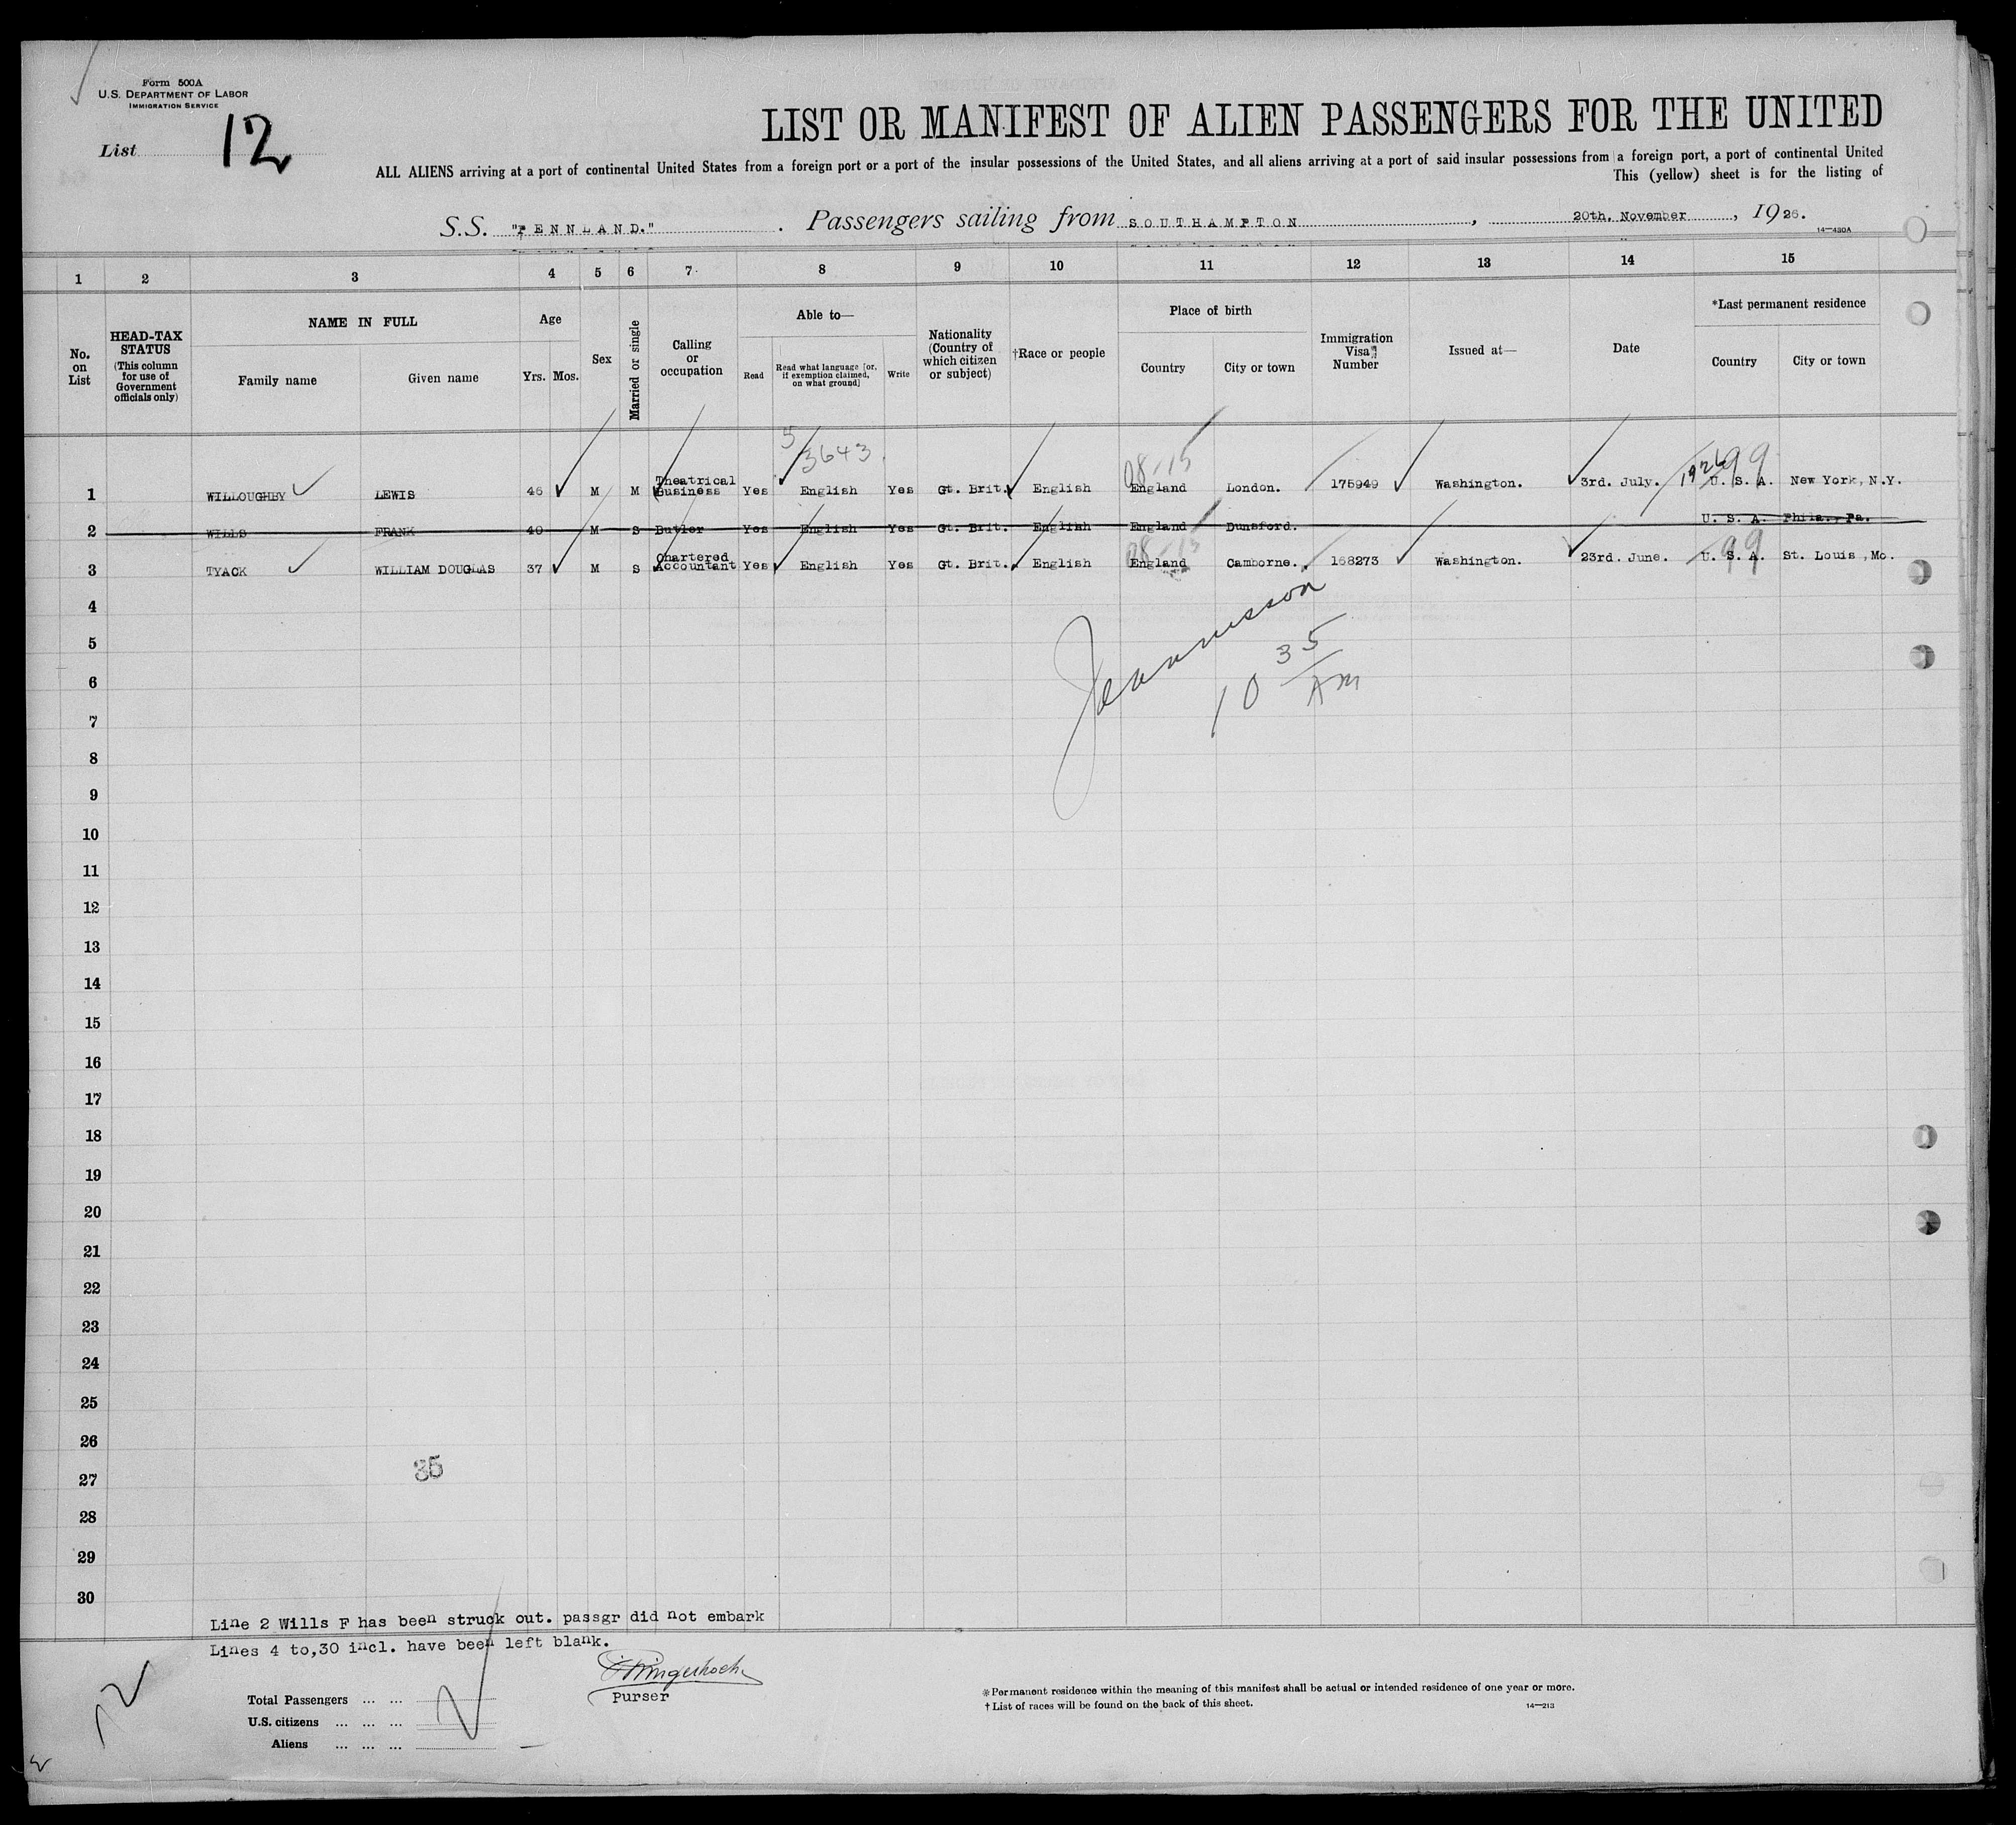 Form 500A
U.S. DEPARTMENT OF LABOR
IMMIGRATION SERVICE
List 12
LIST OR MANIFEST OF ALIEN PASSENGERS FOR THE UNITED
ALL ALIENS arriving at a port of continental United States from a foreign port or a port of the insular possessions of the United States, and all aliens arriving at a port of said insular possessions from a foreign port, a port of continental United
This (yellow) sheet is for the listing of
S.S. "PENNLAND." Passengers sailing from SOUTHAMPTON, 20th. November, 1926.
14—430A
1 2 3 4 5 6 7 8 9 10 11 12 13 14 15
No. on List
HEAD-TAX STATUS (This column for use of Government officials only)
NAME IN FULL
Family name Given name
Age
Yrs. Mos.
Sex
Married or single
Calling or occupation
Able to—
Read Read what language [or, if exemption claimed, on what ground] Write
Nationality (Country of which citizen or subject)
†Race or people
Place of birth
Country City or town
Immigration Visa Number
Issued at—
Date
*Last permanent residence
Country City or town
5 3643 08-15 1926 99
1 WILLOUGHBY LEWIS 46 M M Theatrical Business Yes English Yes Gt. Brit. English England London. 175949 Washington. 3rd. July. U. S. A. New York, N.Y.
2 WILLS FRANK 40 M S Butler Yes English Yes Gt. Brit. English England Dunsford. U. S. A. Phila., Pa.
08-15 99
3 TYACK WILLIAM DOUGLAS 37 M S Chartered Accountant Yes English Yes Gt. Brit. English England Camborne. 168273 Washington. 23rd. June. U. S. A. St. Louis, Mo.
4
5
10 35 AM
6
7
8
9
10
11
12
13
14
15
16
17
18
19
20
21
22
23
24
25
26
27 35
28
29
30
Line 2 Wills F has been struck out. passgr did not embark
Lines 4 to,30 incl. have been left blank.
Purser
12
Total Passengers ... ...
U.S. citizens ... ... ...
Aliens ... ... ...
* Permanent residence within the meaning of this manifest shall be actual or intended residence of one year or more.
† List of races will be found on the back of this sheet.
14—213